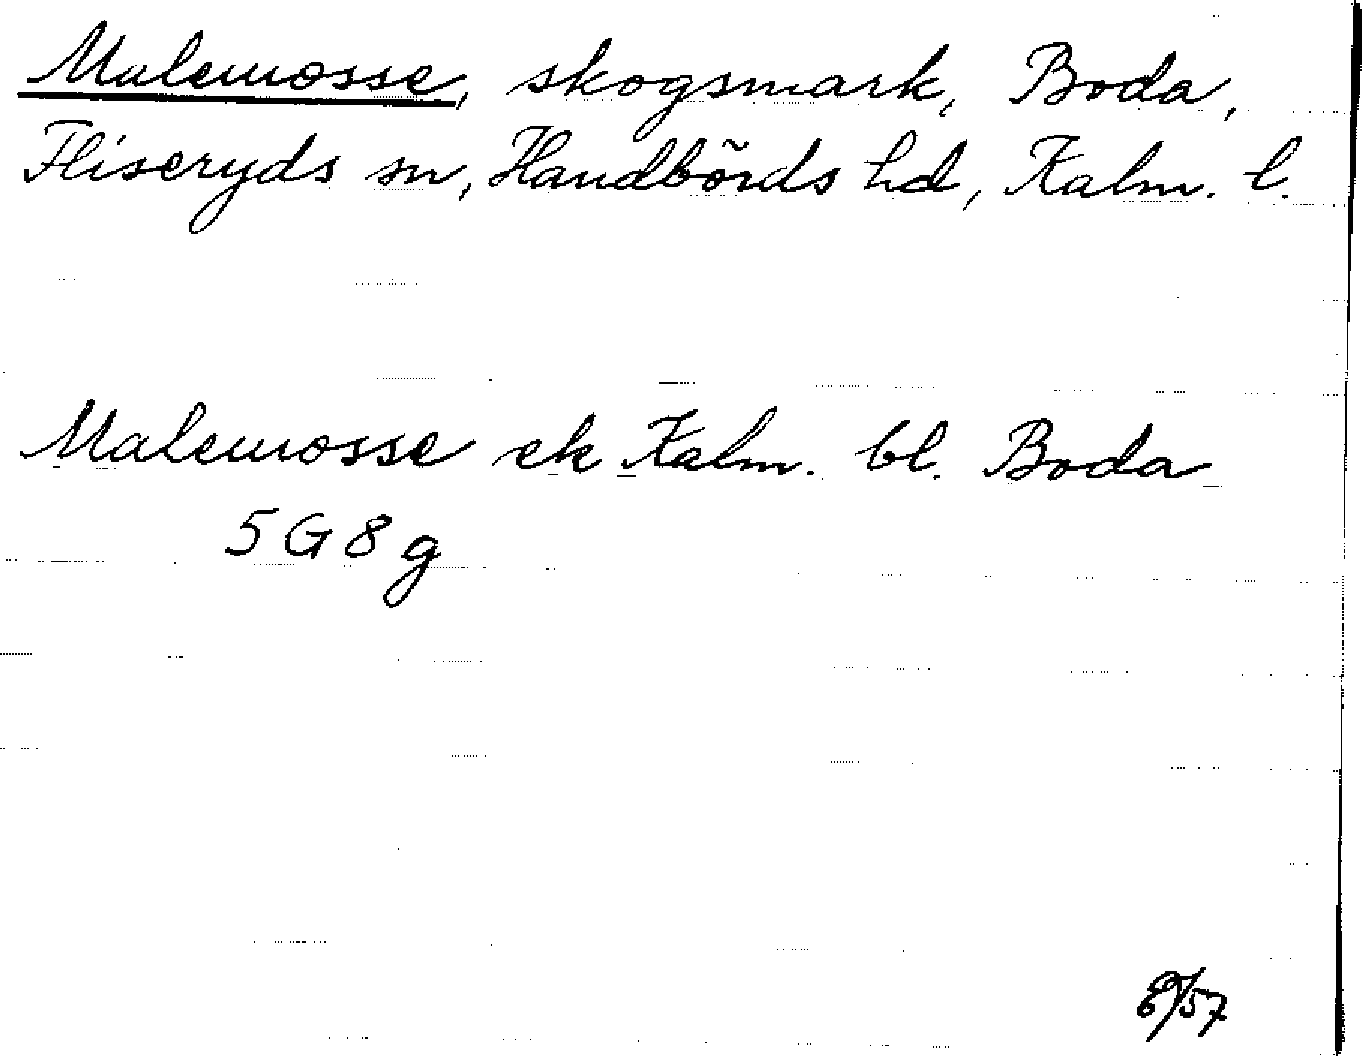 Malemosse, skogsmark, Boda,
Fliseryds sn, Handbörds hd, Kalm. l.
Malemosse ek Kalm. bl. Boda
5G8g